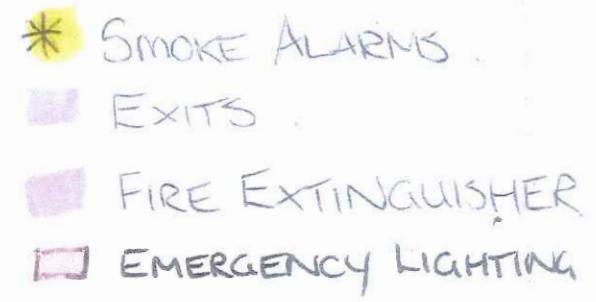 SMOKE ALARMS.
EXITS.
FIRE EXTINGUISHER
EMERGENCY LIGHTING